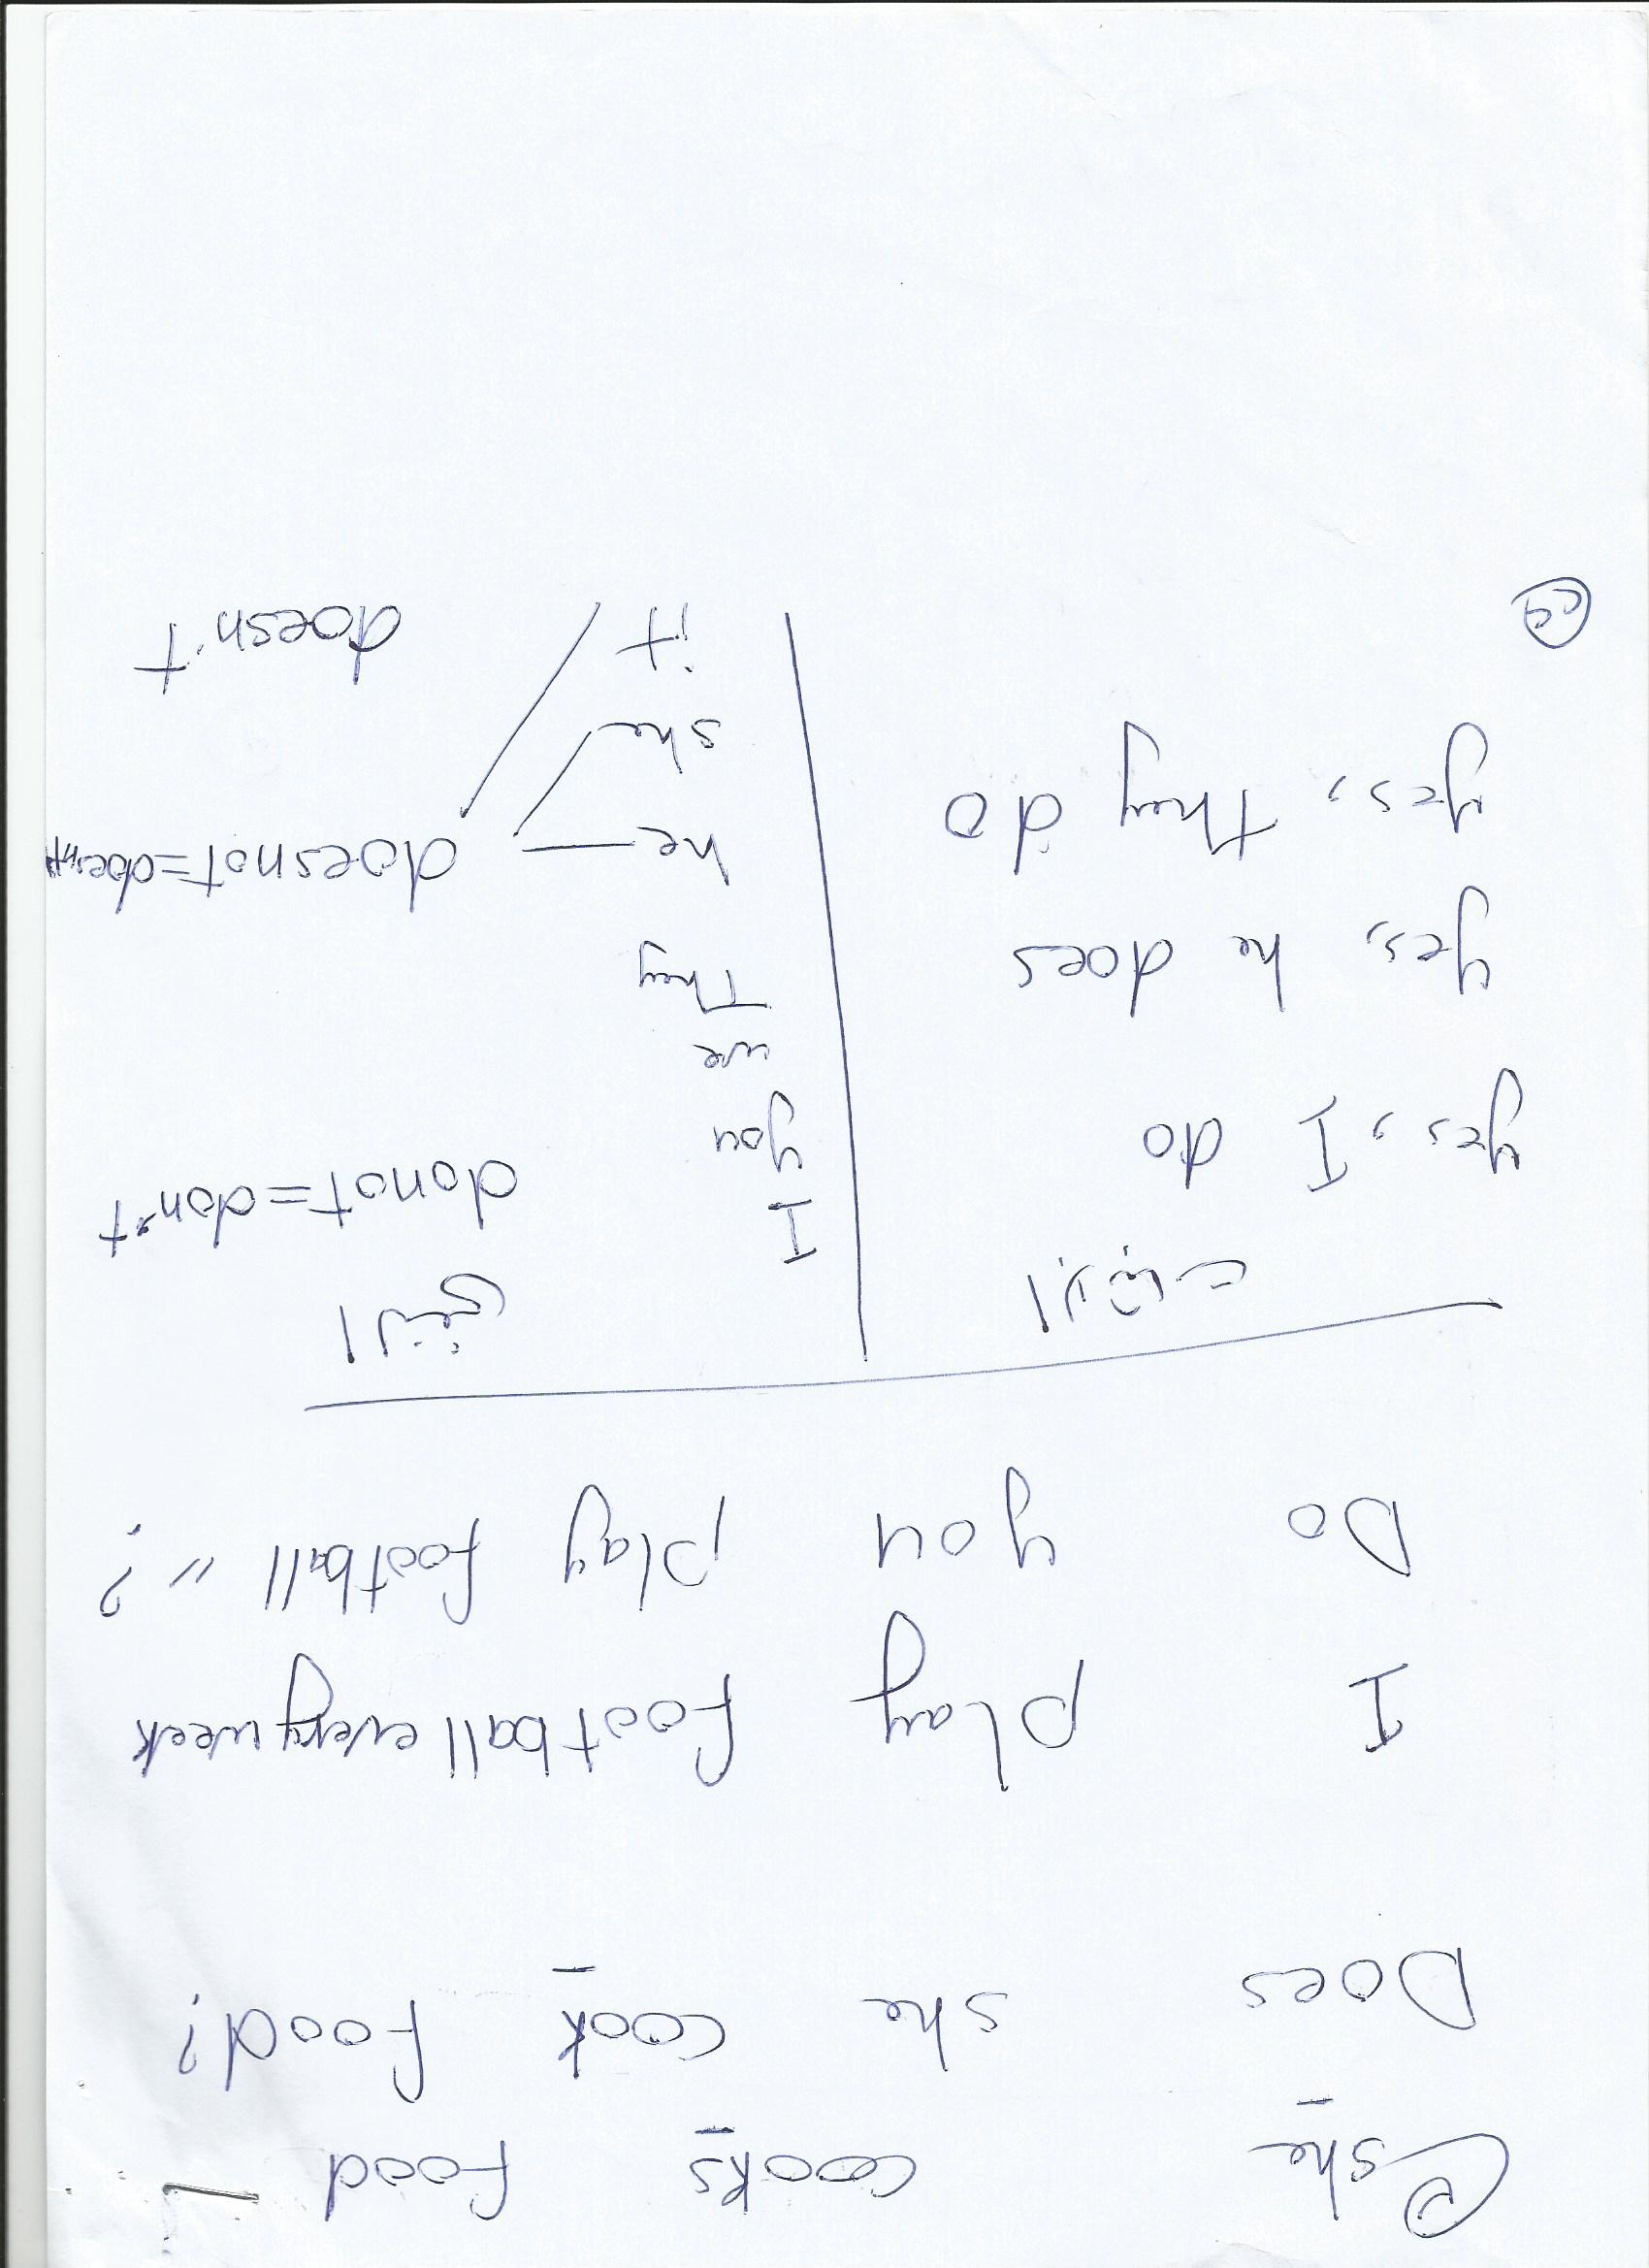 she cooks food
Does she cook food?
I play football every week
Do you play football " ?
الاثبات
النفي
yes, I do
yes, he does
yes, they do
I
you
we
They
he
she
it
donot = don't
doesnot = doesn't
doesn't